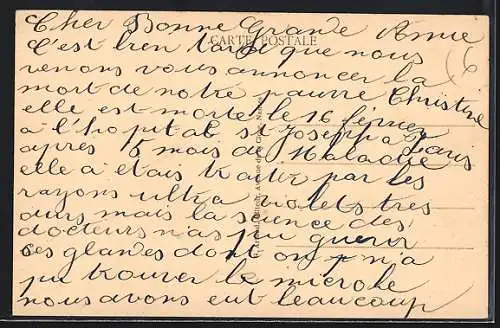 Cher Bonne Grande Amie
CARTE POSTALE
C'est bien tard que nous
venons vous annoncer la
mort de notre pauvre Christine
elle est morte le 16 février
a l'hopital st Joseph a Paris
apres 5 mois de Maladie
elle a étais traité par les
rayons ultra violets tres
durs mais la science des
docteurs n'as pu guerir
ses glandes dont on n'a
pu trouver le microbe
nous avons eut beaucoup